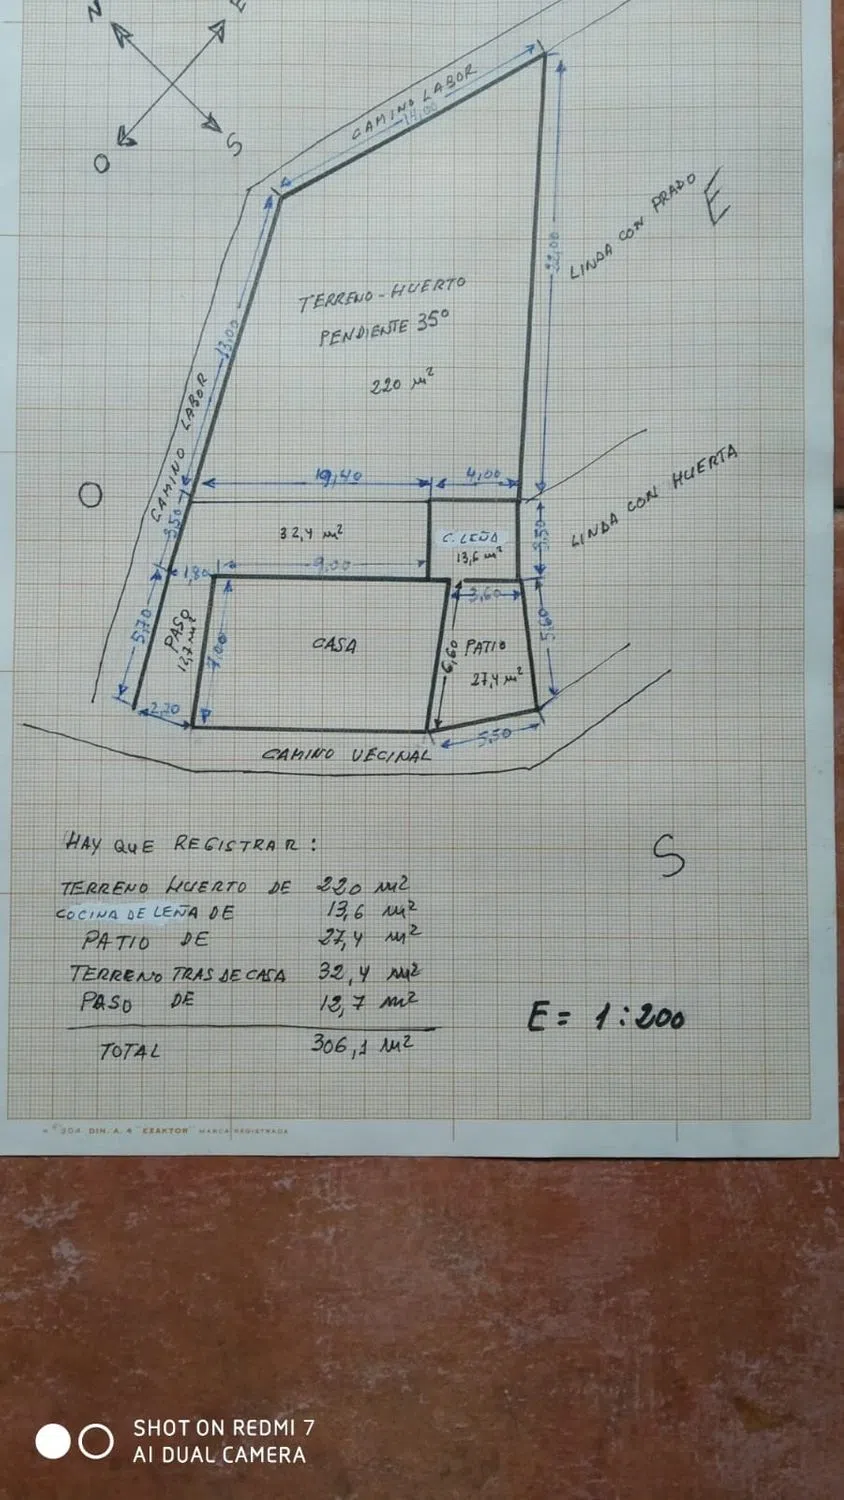 N
E
O
S
CAMINO LABOR
14,00
LINDA CON PRADO
E
22,00
TERRENO-HUERTO
PENDIENTE 35º
220 m²
13,00
CAMINO LABOR
O
10,40
4,00
3,50
32,4 m²
C. LEÑA
13,6 m²
3,50
LINDA CON HUERTA
1,80
9,00
3,60
5,70
PASO
12,7 m²
7,00
CASA
6,60
PATIO
27,4 m²
5,60
2,20
5,50
CAMINO VECINAL
HAY QUE REGISTRAR:
S
TERRENO HUERTO DE 220 m²
COCINA DE LEÑA DE 13,6 m²
PATIO DE 27,4 m²
TERRENO TRAS DE CASA 32,4 m²
PASO DE 12,7 m²
E= 1:200
TOTAL 306,1 m²
DIN. A. 4 "EXAKTOR" MARCA REGISTRADA
SHOT ON REDMI 7
AI DUAL CAMERA